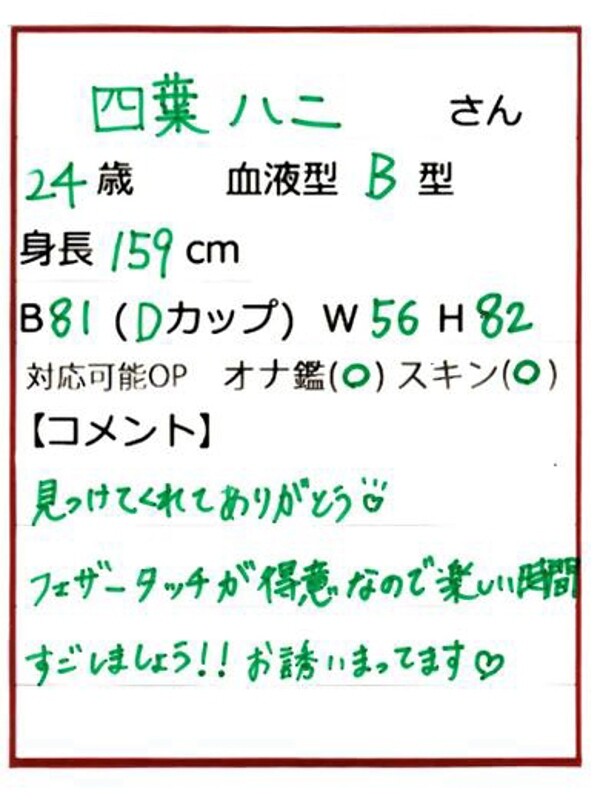 四葉 ハニ さん
24歳 血液型 B 型
身長 159 cm
B81 (Dカップ) W 56 H 82
対応可能OP オナ鑑(○) スキン(○)
【コメント】
見つけてくれてありがとう♡
フェザータッチが得意なので楽しい時間
すごしましょう!! お誘いまってます♡